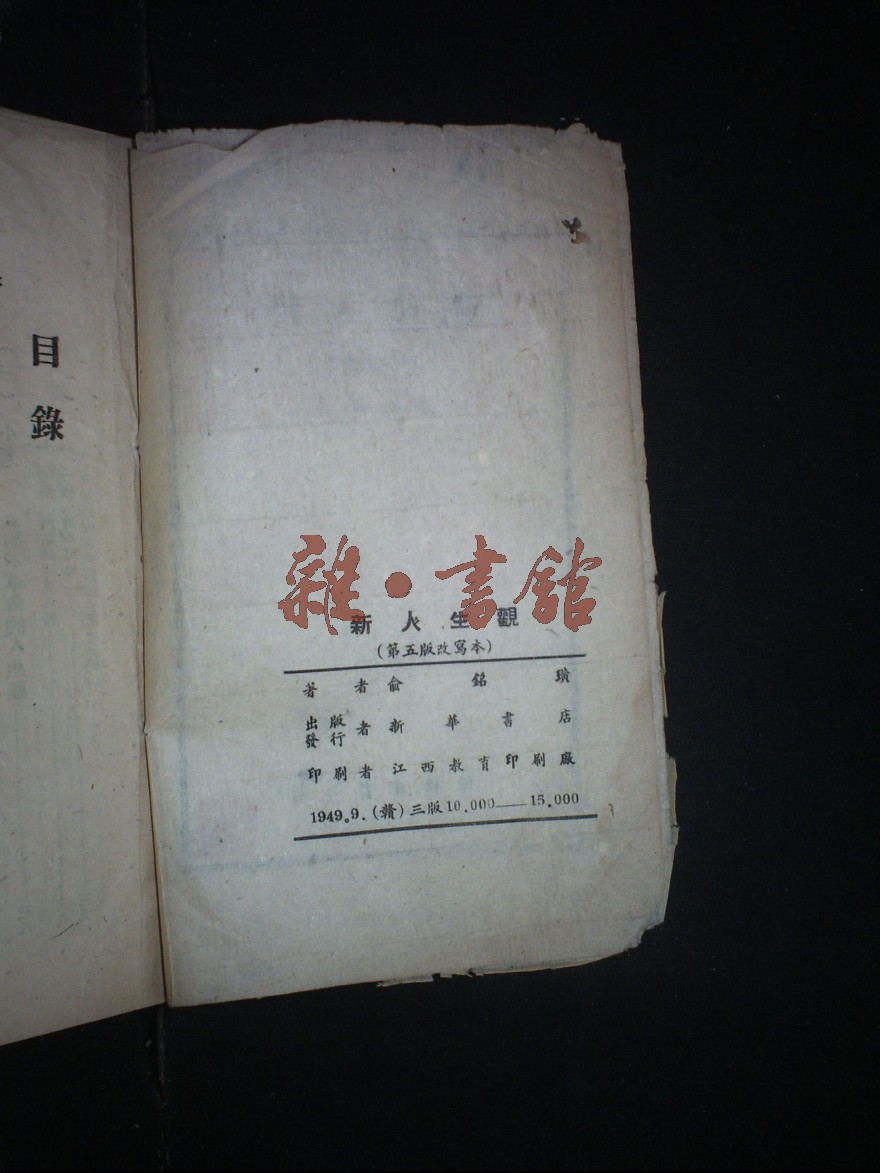 目錄
雜·書館
新人生觀
(第五版改寫本)
著者俞銘璜
出版發行者新華書店
印刷者江西教育印刷廠
1949.9.(贛)三版10.000——15.000